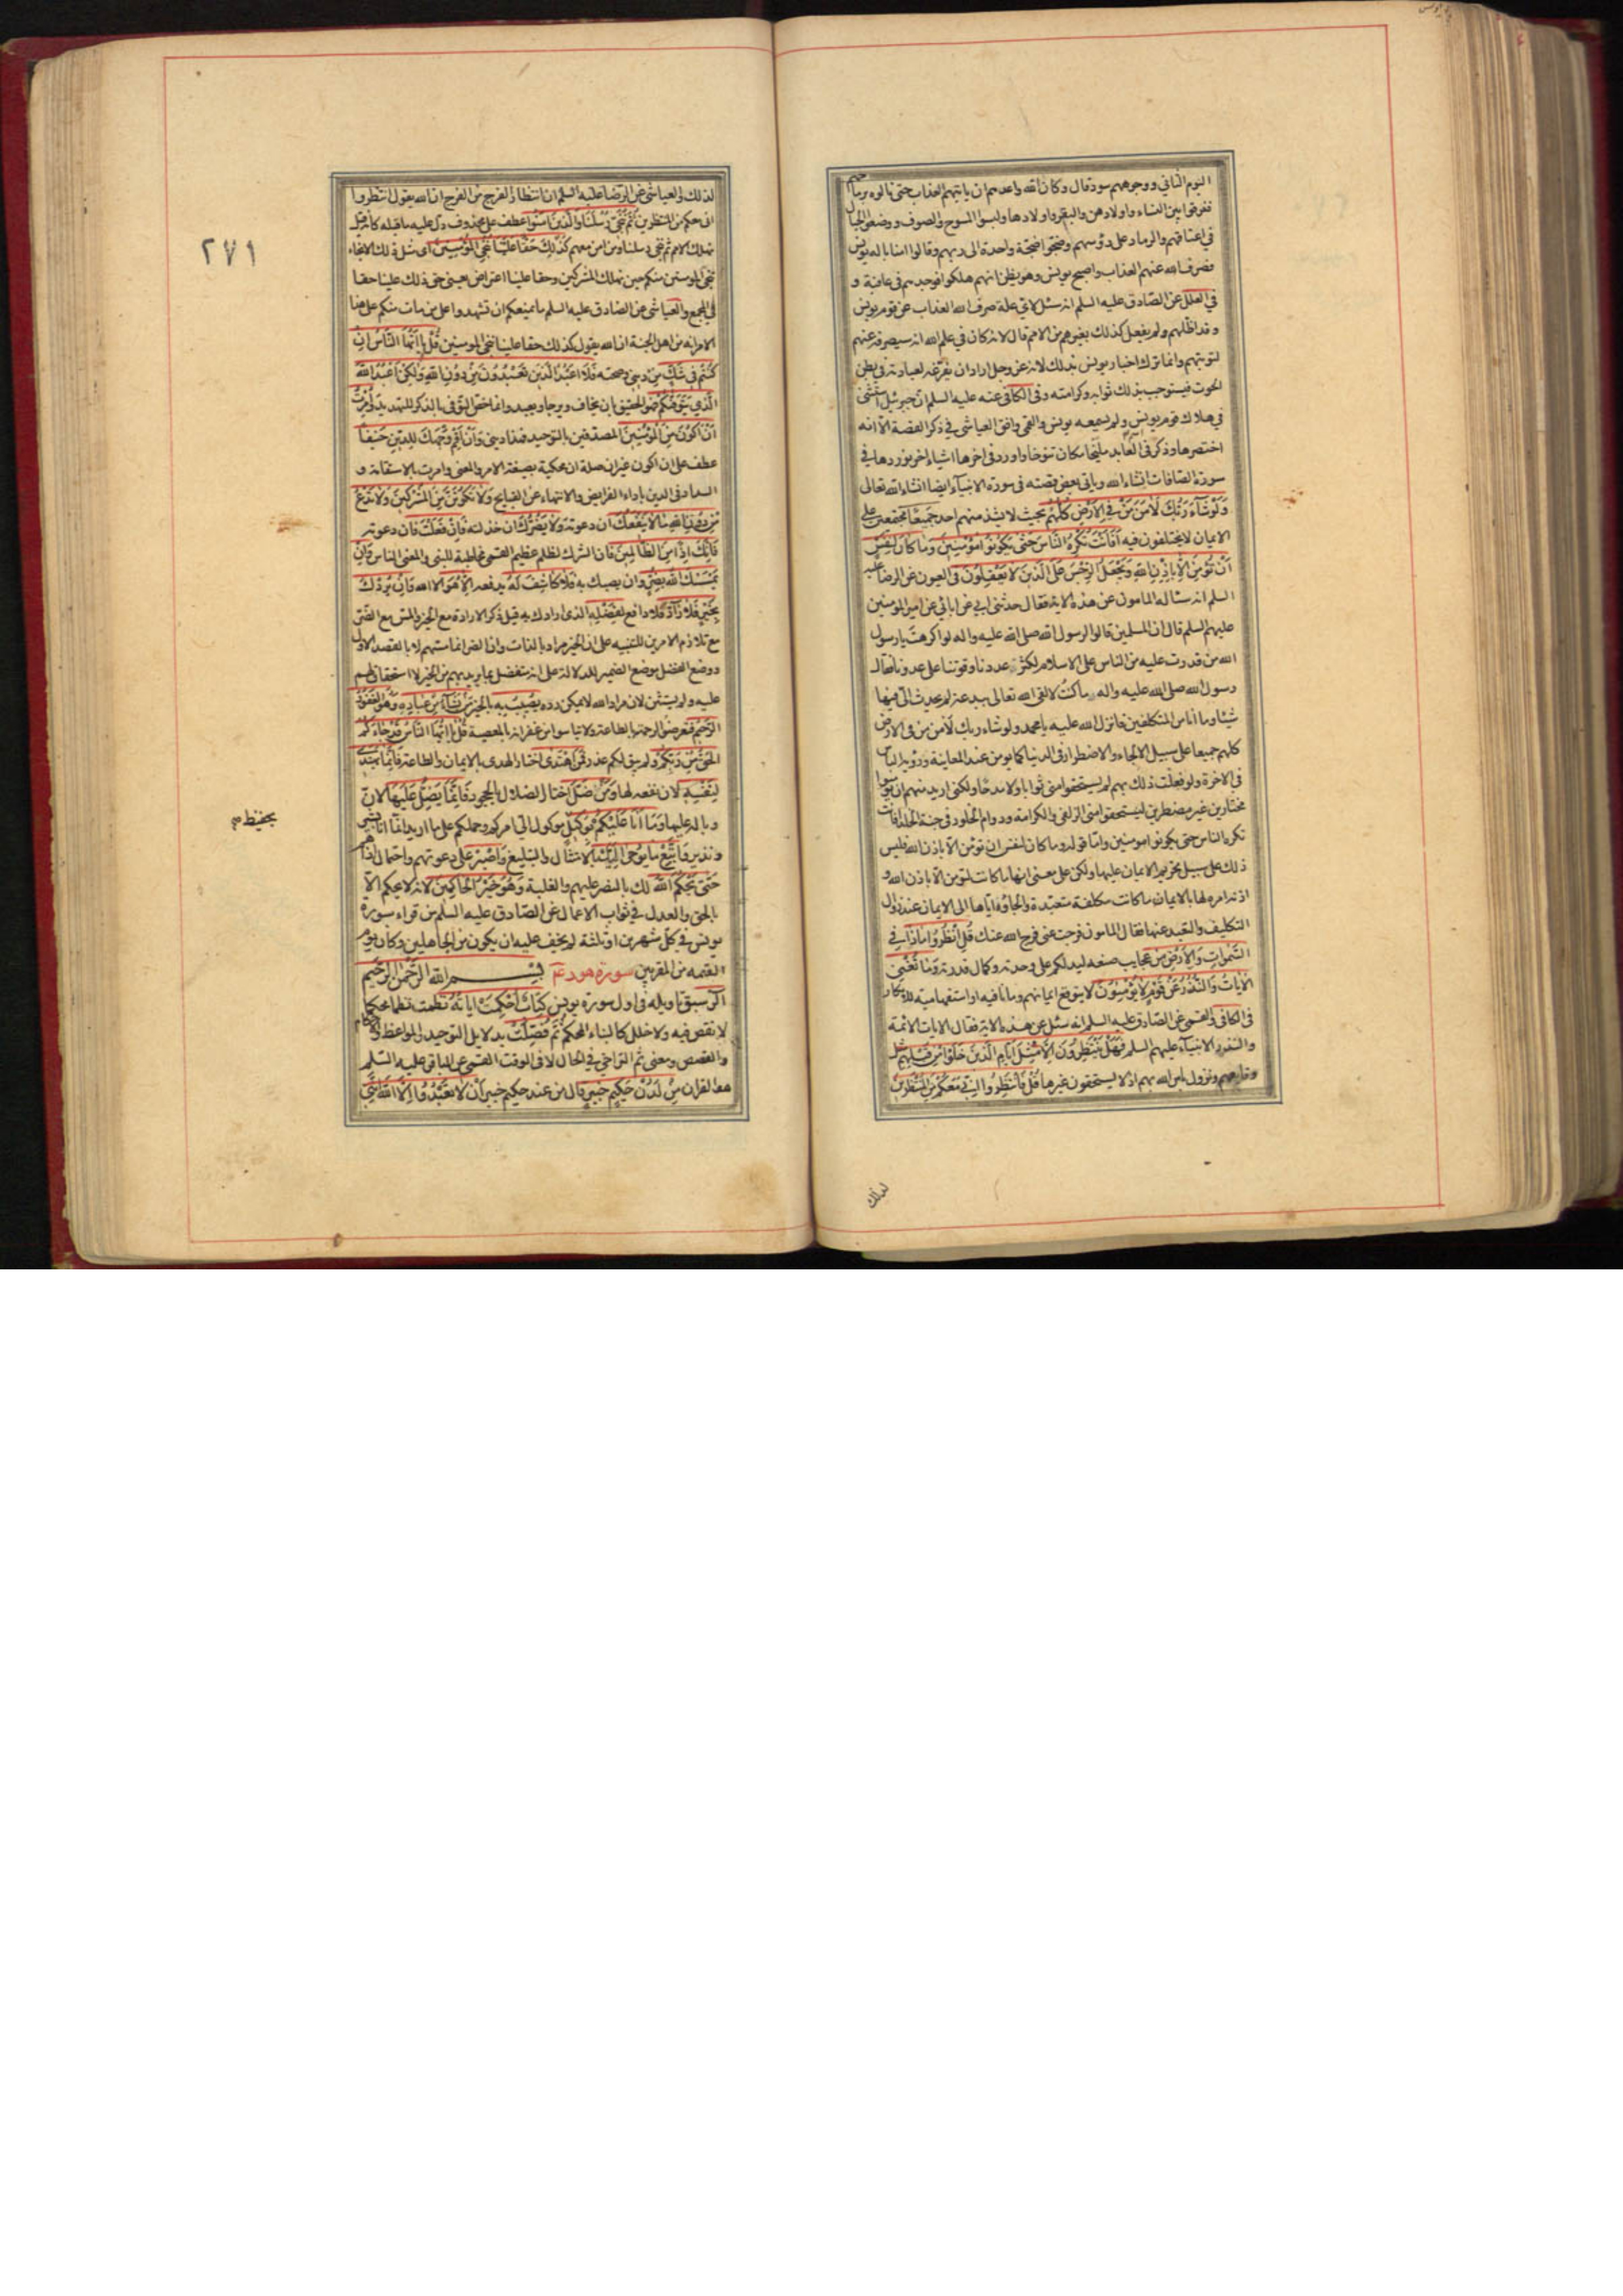 اليوم الثاني ووجوههم سودة قال وكان الله واعدهم ان ياتيهم العذاب حتى نالوه برماحهم
ففرقوا بين النساء واولادهن والبقر واولادها ولبسوا المسوح والصوف ووضعوا الحبال
في اعناقهم والرماد على رؤسهم وضجوا ضجة واحدة الى ربهم وقالوا امنا باله يونس
فصرف الله عنهم العذاب واصبح يونس وهو يظن انهم هلكوا فوجدهم في عافية و
في العلل عن الصادق عليه السلم انه سئل لاي علة صرف الله العذاب عن قوم يونس
وقد اظلهم ولم يفعل كذلك بغيرهم من الامم قال لانه كان في علم الله انه سيصرفه عنهم
لتوبتهم وانما ترك اخبار يونس بذلك لانه عز وجل اراد ان يفرغه لعبادته في بطن
الحوت فيستوجب بذلك ثوابه وكرامته وفي الكافي عنه عليه السلم ان جبرئيل استثنى
في هلاك قوم يونس ولم يسمعه يونس والقمي وافق العياشي في ذكر القصة الا انه
اختصرها وذكر في العابد مليخا مكان تنوخا واورد في اخرها اشياء اخر نوردها في
سورة الصافات انشاء الله وياتي بعض قصته في سورة الانبياء ايضا انشاء الله تعالى
وَلَوْ شَآءَ رَبُّكَ لَاٰمَنَ مَنْ فِي الْاَرْضِ كُلُّهُمْ بحيث لا يشذ منهم احد جَمِيعًا مجتمعين على
الايمان لا يختلفون فيه اَفَاَنْتَ تُكْرِهُ النَّاسَ حَتّٰى يَكُونُوا مُؤْمِنِينَ وَمَا كَانَ لِنَفْسٍ
اَنْ تُؤْمِنَ اِلَّا بِاِذْنِ اللهِ وَيَجْعَلُ الرِّجْسَ عَلَى الَّذِينَ لَا يَعْقِلُونَ في العيون عن الرضا عليه
السلم انه سئاله المامون عن هذه الاية فقال حدثني ابي عن ابائي عن امير المومنين
عليهم السلم قال ان المسلمين قالوا لرسول الله صلى الله عليه واله لو اكرهت يا رسول
الله من قدرت عليه من الناس على الاسلام لكثر عددنا وقوتنا على عدونا فقال
رسول الله صلى الله عليه واله ما كنت لالقى الله تعالى ببدعة لم يحدث الي فيها
شيئا وما انا من المتكلفين فانزل الله عليه يا محمد ولو شاء ربك لآمن من في الارض
كلهم جميعا على سبيل الالجاء والاضطرار في الدنيا كما يومن عند المعاينة ورؤية الباس
في الاخرة ولو فعلت ذلك بهم لم يستحقوا مني ثوابا ولا مدحا ولكني اريد منهم ان يؤمنوا
مختارين غير مضطرين ليستحقوا مني الزلفى والكرامة ودوام الخلود في جنة الخلد افانت
تكره الناس حتى يكونوا مومنين واما قوله وما كان لنفس ان تؤمن الا باذن الله فليس
ذلك على سبيل تحريم الايمان عليها ولكن على معنى انها ما كانت لتومن الا باذن الله و
اذنه امره لها بالايمان ما كانت مكلفة متعبدة والجاؤه اياها الى الايمان عند زوال
التكليف والتعبد عنها فقال المامون فرجت عني فرج الله عنك قُلِ انْظُرُوا مَاذَا فِي
السَّمٰوَاتِ وَالْاَرْضِ من عجايب صنعه ليدلكم على وحدته وكمال قدرته وَمَا تُغْنِي
الْاٰيَاتُ وَالنُّذُرُ عَنْ قَوْمٍ لَا يُؤْمِنُونَ لا يتوقع ايمانهم وما نافية او استفهامية للانكار
في الكافي والقمي عن الصادق عليه السلم انه سئل عن هذه الاية فقال الايات الائمة
والنذر الانبياء عليهم السلم فَهَلْ يَنْتَظِرُونَ اِلَّا مِثْلَ اَيَّامِ الَّذِينَ خَلَوْا مِنْ قَبْلِهِمْ مثل
وقايعهم ونزول باس الله بهم اذ لا يستحقون غيرها قُلْ فَانْتَظِرُوا اِنِّي مَعَكُمْ مِنَ الْمُنْتَظِرِينَ
لذلك
٢٧١
لذلك والعياشي عن الرضا عليه السلم ان انتظار الفرج من الفرج ان الله يقول انتظروا
اني معكم من المنتظرين ثُمَّ نُنَجِّي رُسُلَنَا وَالَّذِينَ اٰمَنُوا عطف على محذوف دل عليه ما قبله كانه قيل
نهلك الامم ثم ننجي رسلنا ومن امن معهم كَذٰلِكَ حَقًّا عَلَيْنَا نُنْجِي الْمُؤْمِنِينَ اي مثل ذلك الانجاء
ننجي المومنين منكم حين نهلك المشركين وحقا علينا اعتراض يعني حق ذلك علينا حقا
في المجمع والعياشي عن الصادق عليه السلم ما يمنعكم ان تشهدوا على من مات منكم على هذا
الامر انه من اهل الجنة ان الله يقول كذلك حقا علينا ننجي المومنين قُلْ يَا اَيُّهَا النَّاسُ اِنْ
كُنْتُمْ فِي شَكٍّ مِنْ دِينِي وصحته فَلَا اَعْبُدُ الَّذِينَ تَعْبُدُونَ مِنْ دُونِ اللهِ وَلٰكِنْ اَعْبُدُ اللهَ
الَّذِي يَتَوَفّٰيكُمْ فهو الحقيق بان يخاف ويرجا ويعبد وانما خص التوفي بالذكر للتهديد وَاُمِرْتُ
اَنْ اَكُونَ مِنَ الْمُؤْمِنِينَ المصدقين بالتوحيد فهذا ديني وَاَنْ اَقِمْ وَجْهَكَ لِلدِّينِ حَنِيفًا
عطف على ان اكون غير ان صلة ان محكية بصيغة الامر والمعنى وامرت بالاستقامة و
السداد في الدين باداء الفرايض والانتهاء عن القبايح وَلَا تَكُونَنَّ مِنَ الْمُشْرِكِينَ وَلَا تَدْعُ
مِنْ دُونِ اللهِ مَا لَا يَنْفَعُكَ ان دعوته وَلَا يَضُرُّكَ ان خذلته فَاِنْ فَعَلْتَ فان دعوته
فَاِنَّكَ اِذًا مِنَ الظَّالِمِينَ فان الشرك لظلم عظيم القمي مخاطبة للنبي والمعنى الناس وَاِنْ
يَمْسَسْكَ اللهُ بِضُرٍّ وان يصبك به فَلَا كَاشِفَ لَهُ يدفعه اِلَّا هُوَ الا الله وَاِنْ يُرِدْكَ
بِخَيْرٍ فَلَا رَآدَّ فلا دافع لِفَضْلِهِ الذي ارادك به قيل ذكر الارادة مع الخير والمس مع الضر
مع تلازم الامرين للتنبيه على ان الخير مراد بالذات وان الضر انما مسهم لا بالقصد الاول
ووضع الفضل موضع الضمير للدلالة على انه متفضل بما يريد بهم من الخير لا استحقاق لهم
عليه ولم يستثن لان مراد الله لا يمكن رده يُصِيبُ بِهِ بالخير مَنْ يَشَآءُ مِنْ عِبَادِهِ وَهُوَ الْغَفُورُ
الرَّحِيمُ فتعرضوا لرحمته بالطاعة ولا تياسوا من غفرانه بالمعصية قُلْ يَا اَيُّهَا النَّاسُ قَدْ جَاءَكُمُ
الْحَقُّ مِنْ رَبِّكُمْ ولم يبق لكم عذر فَمَنِ اهْتَدٰى اختار الهدى بالايمان والطاعة فَاِنَّمَا يَهْتَدِي
لِنَفْسِهِ لان نفعه لها وَمَنْ ضَلَّ اختار الضلال بالجحود فَاِنَّمَا يَضِلُّ عَلَيْهَا لان
وباله عليها وَمَا اَنَا عَلَيْكُمْ بِوَكِيلٍ موكول الي امركم وحملكم على ما اريد انما انا بشير
بحفيظ
ونذير وَاتَّبِعْ مَا يُوحٰى اِلَيْكَ بالامتثال والتبليغ وَاصْبِرْ على دعوتهم واحتمال اذاهم
حَتّٰى يَحْكُمَ اللهُ لك بالنصر عليهم والغلبة وَهُوَ خَيْرُ الْحَاكِمِينَ لانه لا يحكم الا
بالحق والعدل في ثواب الاعمال عن الصادق عليه السلم من قراء سورة
يونس في كل شهرين او ثلثة لم يخف عليه ان يكون من الجاهلين وكان يوم
القيمه من المقربين سورة هود بِسْمِ اللهِ الرَّحْمٰنِ الرَّحِيمِ
الٓر سبق تاويله في اول سورة يونس كِتَابٌ اُحْكِمَتْ اٰيَاتُهُ نظمت نظما محكما
لا نقص فيه ولا خلل كالبناء المحكم ثُمَّ فُصِّلَتْ بدلايل التوحيد والمواعظ والاحكام
والقصص ومعنى ثم التراخي في الحال لا في الوقت القمي عن الباقر عليه السلم
هو القران مِنْ لَدُنْ حَكِيمٍ خَبِيرٍ قال من عند حكيم خبير اَنْ لَا تَعْبُدُوا اِلَّا اللهَ اِنَّنِي